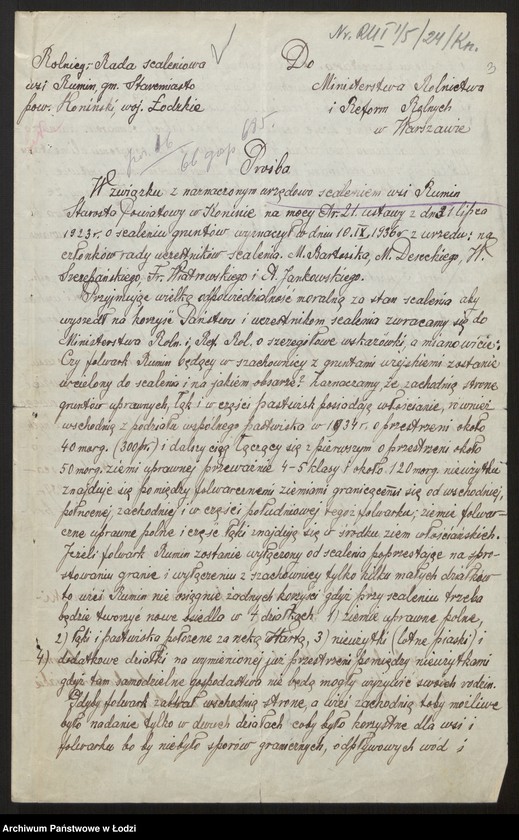 Nr. RUI 1/5/24/Kn.
3
Rolnicz. Rada scaleniowa
wsi Rumin, gm. Staremiasto
pow. Koniński, woj. Łódzkie
Do
Ministerstwa Rolnictwa
i Reform Rolnych
w Warszawie
Prośba
W związku z naznaczonym urzędowo scaleniem wsi Rumin
Starosta Powiatowy w Koninie na mocy Ar. 21. ustawy z dn. 31 lipca
1923 r. o scaleniu gruntów wyznaczył w dniu 10.IX 1936 r z urzędu: na
członków rady uczestników scalenia. M. Bartosika, M. Deseckiego, W.
Szczepańskiego, Fr. Wiatrowskiego i A. Jankowskiego.
Przyjmując wielką odpowiedzialność moralną za stan scalenia aby
wyszedł na korzyść Państwu i uczestnikom scalenia zwracamy się do
Ministerstwa Roln. i Ref. Rol. o szczegółowe wskazówki, a mianowicie:
Czy folwark Rumin będący w szachownicy z gruntami wiejskiemi zostanie
wcielony do scalenia i na jakiem obszarze? Zaznaczamy, że zachodnią stronę
gruntów uprawnych, łąk i w części pastwisk posiadają włościanie, również
wschodnią z podziału wspólnego pastwiska w 1934 r. o przestrzeni około
40 morg. (300 pr.) i dalszy ciąg łączący się z pierwszym o przestrzeni około
50 morg. ziemi uprawnej przeważnie 4-5 klasy i około 120 morg. nieużytki
znajduje się pomiędzy folwarcznemi ziemiami graniczącemi się od wschodniej,
północnej, zachodniej i w części południowej tegoż folwarku; ziemie folwar-
czne uprawne polne i część łąki znajdują się w środku ziem włościańskich.
Jeżeli folwark Rumin zostanie wyłączony od scalenia poprzestając na spro-
stowaniu granic i wyłączeniu z szachownicy tylko kilku małych działków
to wieś Rumin nie osiągnie żadnych korzyści gdyż przy scaleniu trzeba
będzie tworzyć nowe siedla w 4 działkach 1) ziemie uprawne polne,
2) łąki i pastwiska położone za rzeką Wartą, 3) nieużytki (lotne piaski) i
4) dodatkowe działki na wymienionej już przestrzeni pomiędzy nieużytkami
gdyż tam samodzielne gospodarstwa nie będą mogły wyżywić swoich rodzin.
Gdyby folwark zabrał wschodnią stronę, a wieś zachodnią toby możliwe
było nadanie tylko w dwuch działach coby było korzystne dla wsi i
folwarku bo by niebyło sporów granicznych, odpływowych wód i
Archiwum Państwowe w Łodzi